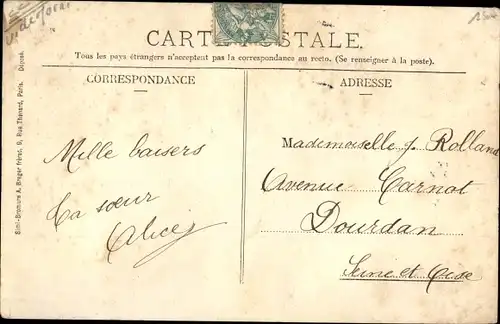 CARTE POSTALE
Tous les pays étrangers n'acceptent pas la correspondance au recto. (Se renseigner à la poste).
CORRESPONDANCE
ADRESSE
Mille baisers
Ta sœur
Alice
Mademoiselle J. Rolland
Avenue Carnot
Dourdan
Seine et Oise
Simi-Bromure A. Breger frères, 9, Rue Thénard, Paris. Déposé.